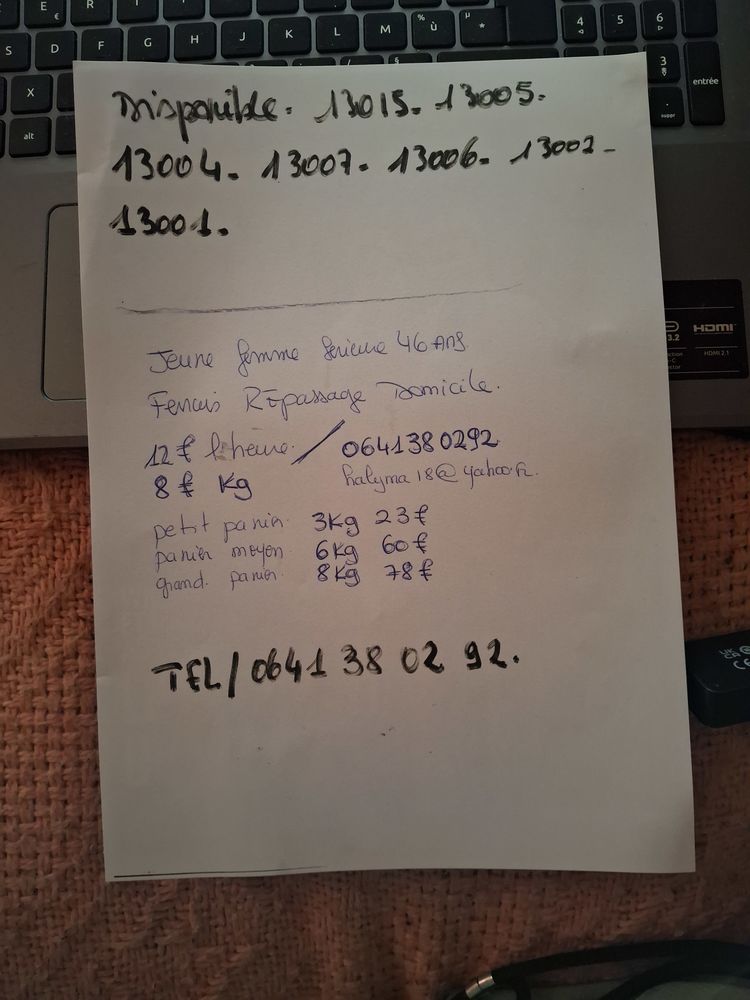 E €
R
T
Y
U
I
O
P
S D F G H J K L M % ù µ *
4 5 6
X
3
alt
. suppr
entrée
Disponible. 13015. 13005.
13004. 13007. 13006. 13002-
13001.
HDMI
3.2
HDMI 2.1
Jeune femme serieuse 46 Ans
REpassage Domicile.
12 € l'heure. / 0641380292
8 € Kg halyma18@yahoo.fr.
petit panier. 3Kg 23€
panier moyen. 6Kg 60€
grand. panier. 8Kg 78€
UK CA CE
TEL/0641 38 02 92.